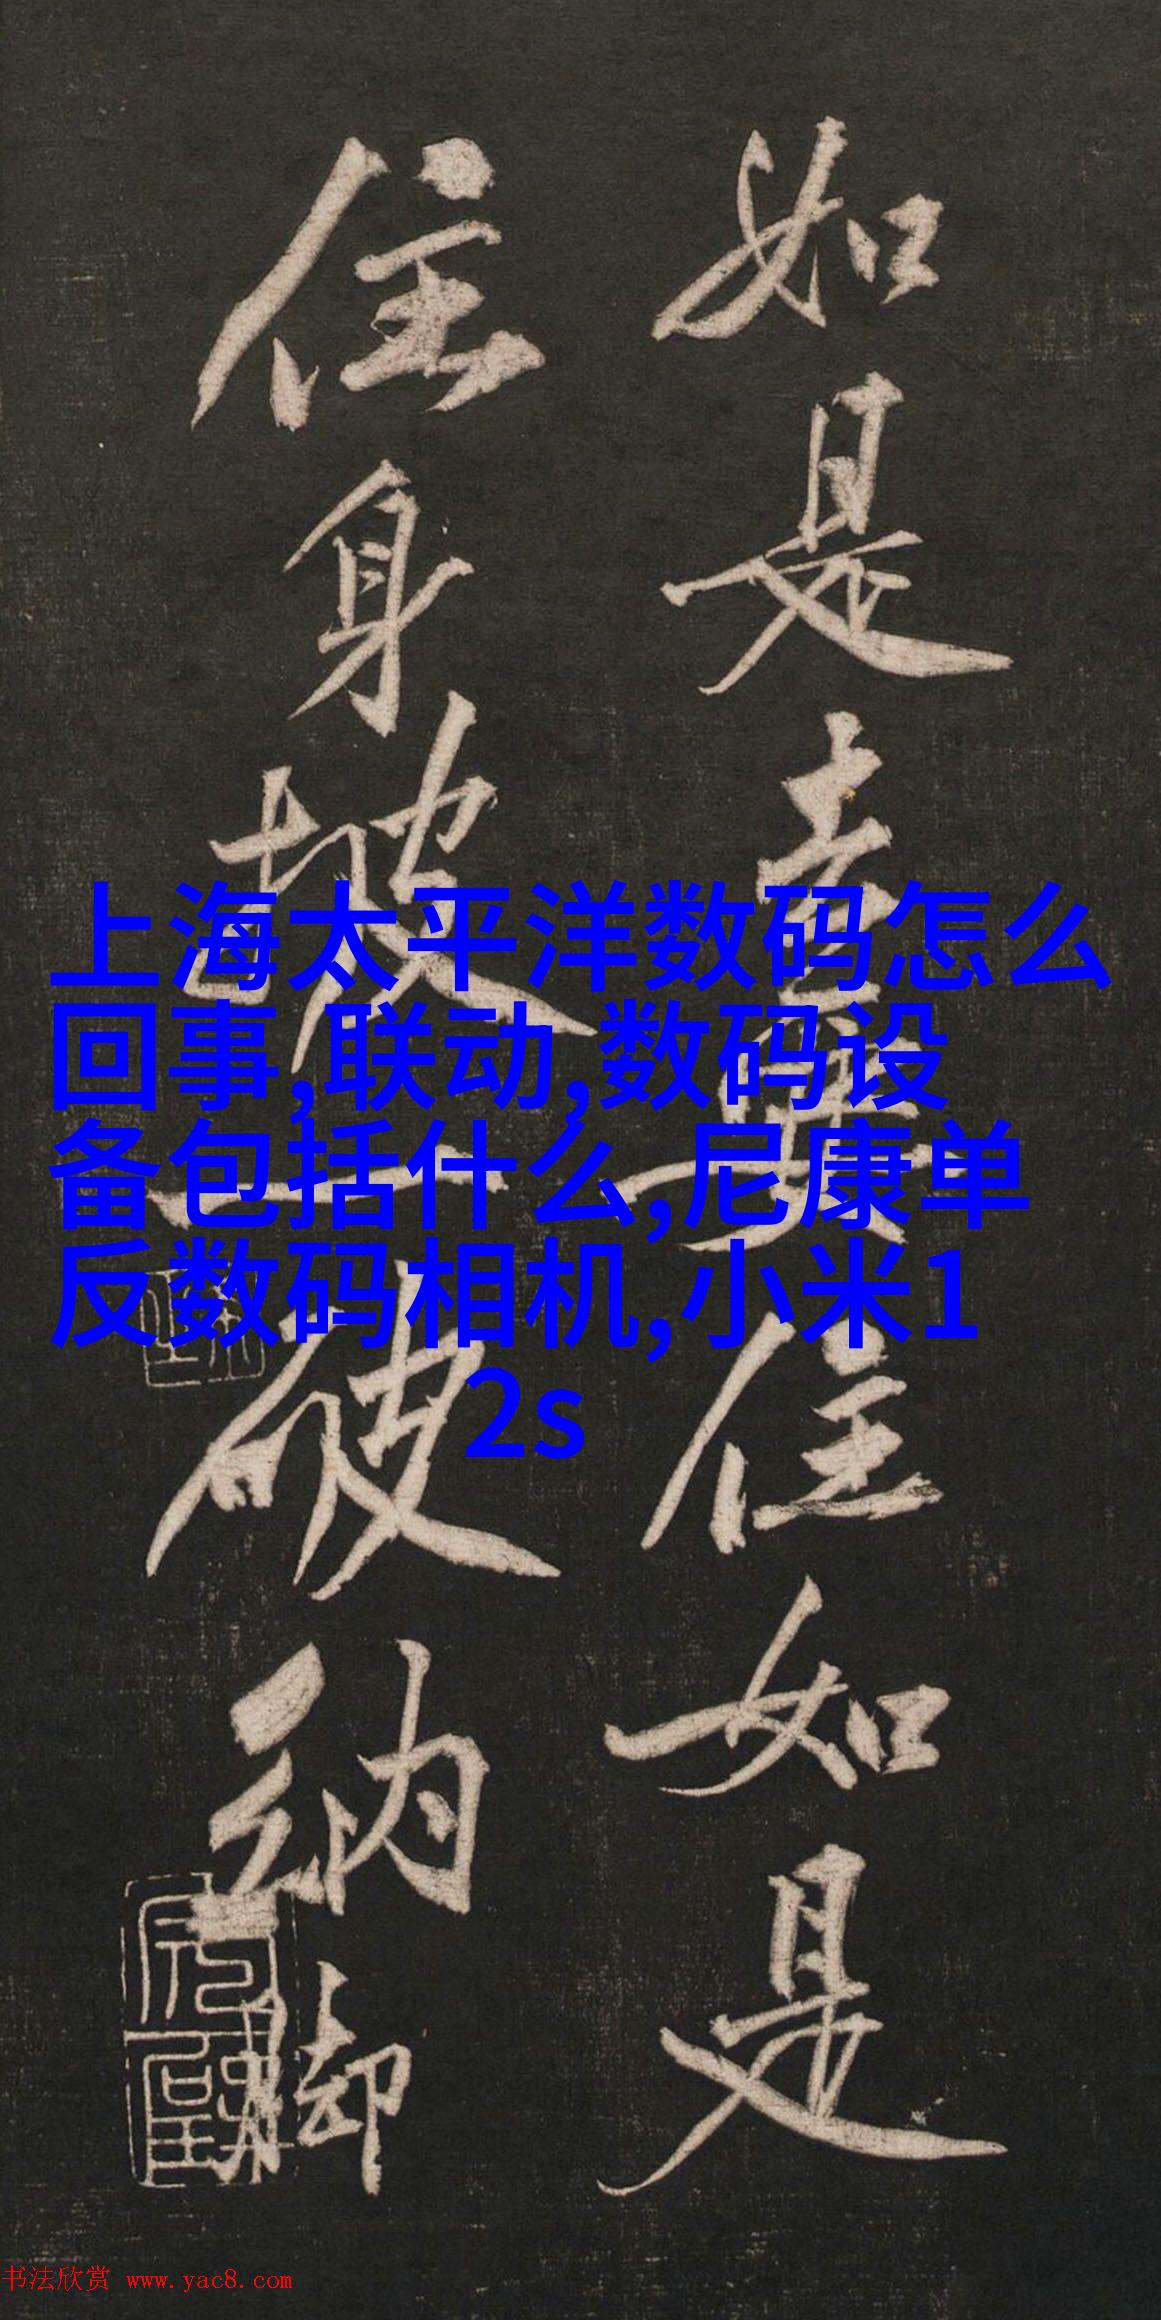 如是去與住如是
住身披一破衲脚
上海太平洋数码怎么
回事,联动,数码设
备包括什么,尼康单
反数码相机,小米1
2s
书法欣赏 www.yac8.com